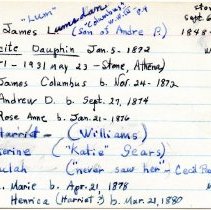 "Lum"
Lumsdan
"Columbus"
James (Son of Andre B) 1848-
Sept. 6
cite Dauphin Jan. 5-1872
1-1931 May 23 - Stone, Athena)
James Columbus b. Nov. 24-1872
Andrew D. b. Sept. 27, 1874
Rose Anne b. Jan. 21-1876
Harriet - (Williams)
erine, ("Katie" Sears)
ulah ("never saw her" - Cecil
. Marie b. Apr. 21, 1878
Henrica (Harriet?) b. Mar. 21, 1880